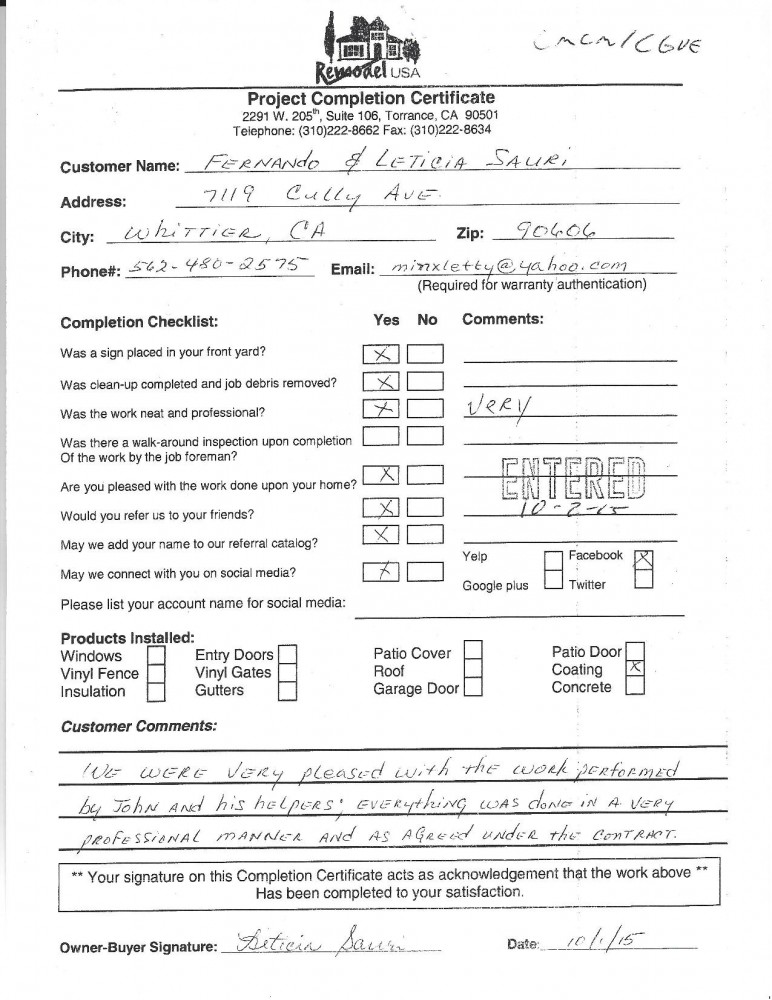 Remodel USA
Project Completion Certificate
2291 W. 205th, Suite 106, Torrance, CA 90501
Telephone: (310)222-8662 Fax: (310)222-8634
Customer Name: FERNANDO & LETICIA SAURI
Address: 7119 Cully AVE.
City: WHITTIER, CA Zip: 90606
Phone#: 562-480-2575 Email: minxletty@yahoo.com
(Required for warranty authentication)
Completion Checklist: Yes No Comments:
Was a sign placed in your front yard? X
Was clean-up completed and job debris removed? X
Was the work neat and professional? X VERY
Was there a walk-around inspection upon completion
Of the work by the job foreman?
ENTERED
Are you pleased with the work done upon your home? X
Would you refer us to your friends? X 10-2-15
May we add your name to our referral catalog? X
Yelp Facebook X
May we connect with you on social media? X
Google plus Twitter
Please list your account name for social media:
Products Installed:
Windows Entry Doors Patio Cover Patio Door
Vinyl Fence Vinyl Gates Roof Coating X
Insulation Gutters Garage Door Concrete
Customer Comments:
WE WERE VERY pleased with THE WORK PERFORMED
by JOHN AND his hELPERS' EVERYTHING WAS dONE IN A VERY
PROFESSIONAL MANNER AND AS AGREED UNDER the CONTRACT.
** Your signature on this Completion Certificate acts as acknowledgement that the work above **
Has been completed to your satisfaction.
Owner-Buyer Signature: Leticia Sauri Date: 10/1/15